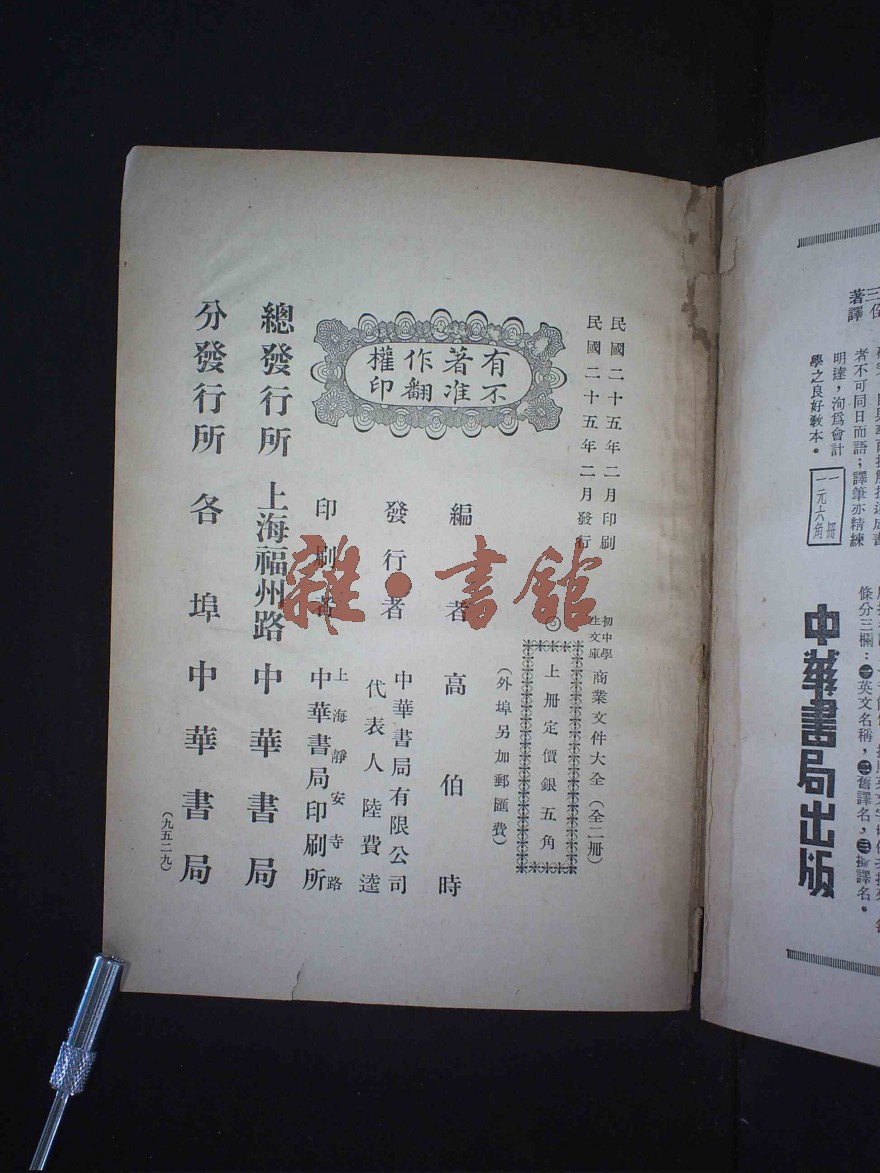 民國二十五年二月印刷
民國二十五年二月發行
初中學
生文庫
商業文件大全（全二册）
上册定價銀五角
（外埠另加郵匯費）
有著作權
不准翻印
編者 高伯時
發行者 中華書局有限公司
代表人陸費逵
印刷者 上海靜安寺路
中華書局印刷所
總發行所 上海福州路 中華書局
分發行所 各埠 中華書局
（九五二九）
雜·書館
著譯
者不可同日而語；譯筆亦精練
明達，洵爲會計
學之良好敎本。
一册
一元六角
條分三欄：㊀英文名稱，㊁舊譯名，㊂擬譯名。
中華書局出版